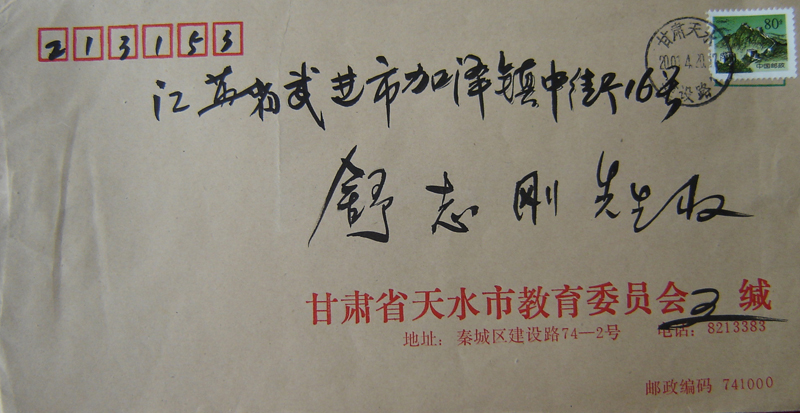 213153
80分
中国邮政
甘肃天水
建设路
江苏省武进市加泽镇中街16号
舒志刚先生收
甘肃省天水市教育委员会 缄
地址：秦城区建设路74—2号 电话：8213383
邮政编码 741000